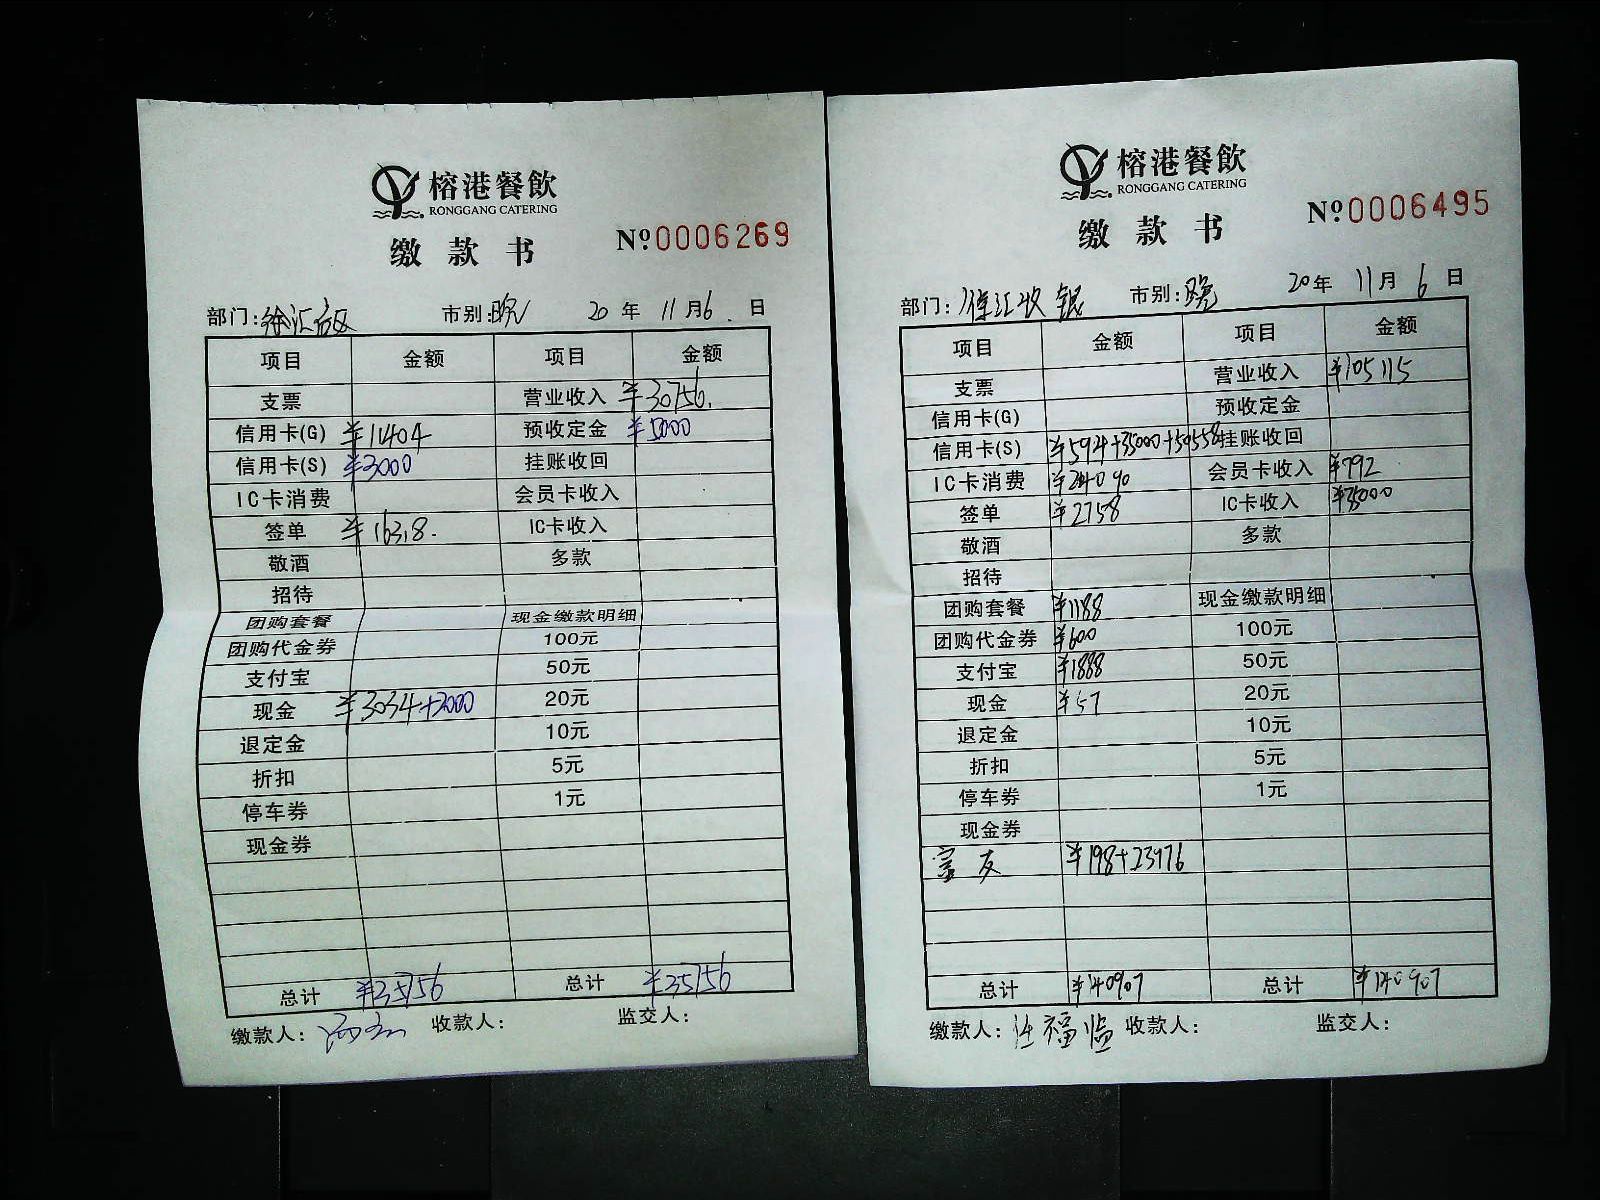 榕港餐飲
RONGGANG CATERING
缴款书
Nº0006269
部门: 市别:晚 20年11月6日
项目 金额 项目 金额
支票 营业收入 ¥30756.
信用卡(G) ¥11404 预收定金 ¥5000
信用卡(S) ¥3000 挂账收回
IC卡消费 会员卡收入
签单 ¥16318. IC卡收入
敬酒 多款
招待
团购套餐 现金缴款明细
团购代金券 100元
支付宝 50元
现金 ¥3034+2000 20元
退定金 10元
折扣 5元
停车券 1元
现金券
总计 ¥35756 总计 ¥35756
缴款人: 收款人: 监交人:
榕港餐飲
RONGGANG CATERING
缴款书
Nº0006495
部门:徐汇收银 市别:晚 20年11月6日
项目 金额 项目 金额
支票 营业收入 ¥105115
信用卡(G) 预收定金
信用卡(S) ¥594+35000+50558 挂账收回
IC卡消费 ¥24090 会员卡收入 ¥792
签单 ¥2758 IC卡收入 ¥35000
敬酒 多款
招待
团购套餐 ¥1188 现金缴款明细
团购代金券 ¥600 100元
支付宝 ¥1888 50元
现金 ¥57 20元
退定金 10元
折扣 5元
停车券 1元
现金券
富友 ¥198+23976
总计 ¥140907 总计 ¥140907
缴款人:汪福临 收款人: 监交人: